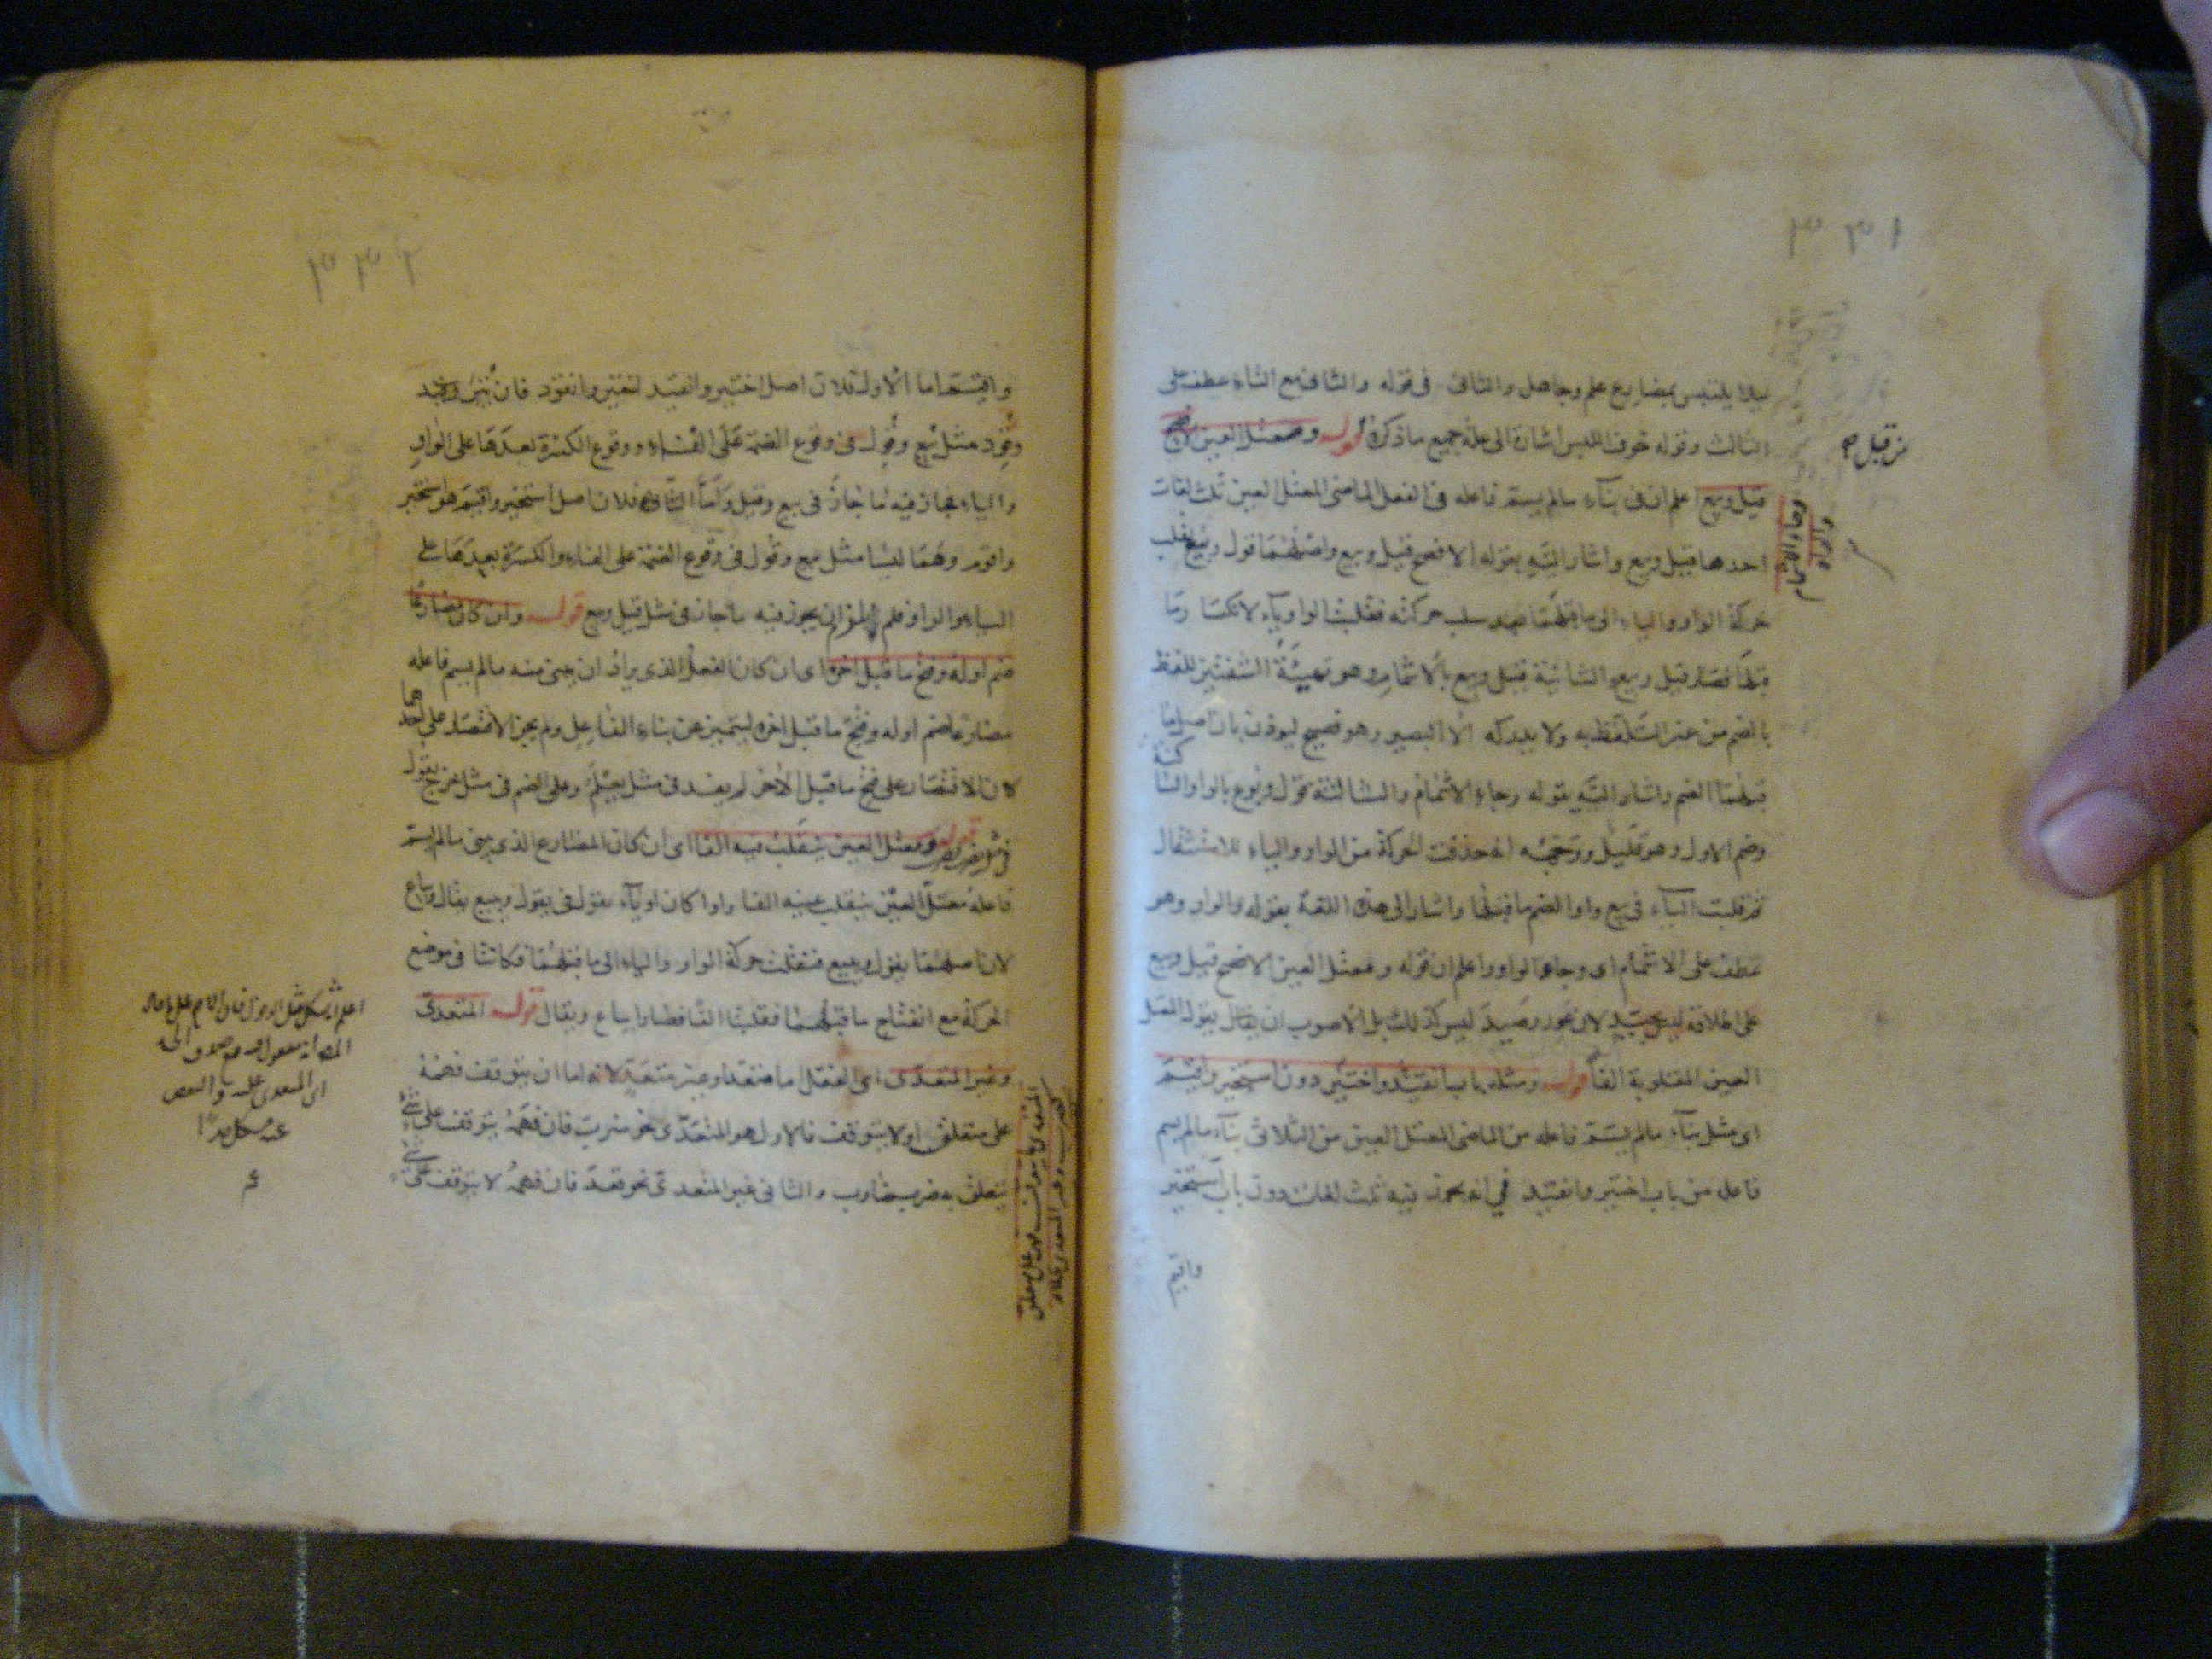 ٣٣١
ليلا يلتبس بمضارع علم وجاهل والثانى فى قوله والثانى مع التاء عطف على
الثالث وقوله خوف اللبس اشارة الى علة جميع ما ذكره قوله ومعتل العين الافصح
قيل وبيع اعلم ان فى بناء مالم يسم فاعله فى الفعل الماضى المعتل العين ثلث لغات
احدها قيل وبيع واشار اليه بقوله الافصح قيل وبيع واصلهما قول وبيع نقلت
حركة الواو والياء الى ما قبلهما بعد سلب حركته فقلبت الواو ياء لانكسار ما
قبلها فصار قيل وبيع والثانية قيل وبيع بالاشمام وهو تهيئة الشفتين للفظ
بالضم من غير التلفظ به ولا يدركه الا البصير وهو فصيح ليوذن بان اصل ما
قبلهما الضم واشار اليه بقوله وجاء الاشمام والثالثة قول وبوع بالواو الساكنة
وضم الاول وهو قليل ووجهه انه حذفت الحركة من الواو والياء للاستثقال
ثم قلبت الياء فى بيع واوا لضم ما قبلها واشار الى هذه اللغة بقوله والواو وهو
عطف على الاشمام اى وجاء الواو واعلم ان قوله ومعتل العين الافصح قيل وبيع
على اطلاقه ليس بجيد لان عور وصيد ليس كذلك بل الاصوب ان يقال بقول المعتل
العين المقلوبة الفا قوله ومثله باب انقيد واختير دون استخير واقيم
اى مثل بناء مالم يسم فاعله من الماضى المعتل العين من الثلاثى بناء مالم يسم
فاعله من باب اختير وانقيد فى انه يجوز فيه ثلث لغات دون باب استخير
واقيم
من قبل
وجاء الاشمام والواو
٣٣٢
واقيم اما الاول فلان اصل اختير وانقيد اختير وانقود فان تير وقيد
وقود مثل بيع وقول فى وقوع الضمة على الفاء ووقوع الكسرة بعدها على الواو
والياء فجاز فيه ما جاز فى بيع وقيل واما الثانى فلان اصل استخير واقيم هو استخير
واقوم وهما ليسا مثل بيع وقول فى وقوع الضمة على الفاء والكسرة بعدها على
الياء والواو فلم يلزم ان يجوز فيه ما جاز فى مثل قيل وبيع قوله وان كان مضارعا
ضم اوله وفتح ما قبل اخره اى ان كان الفعل الذى يراد ان يبنى منه مالم يسم فاعله
مضارعا ضم اوله وفتح ما قبل اخره ليتميز عن بناء الفاعل ولم يجز الاقتصار على احدهما
لان الاقتصار على فتح ما قبل الاخر لم يفد فى مثل يعلم وعلى الضم فى مثل يخرج بقوله
قوله ومعتل العين ينقلب فيه الفا اى ان كان المضارع الذى يبنى مالم يسم
فاعله معتل العين ينقلب عينه الفا واوا كان او ياء بقول فى يقول ويبيع يقال ويباع
لان اصلهما يقول ويبيع فنقلت حركة الواو والياء الى ما قبلهما فكانتا فى موضع
الحركة مع انفتاح ما قبلهما فقلبتا الفا فصار ايباع ويقال قوله المتعدى
وغير المتعدى اى الفعل اما متعد او غير متعد لانه اما ان يتوقف فهمه
على متعلق او لا يتوقف فالاول هو المتعدى نحو ضرب فان فهمه يتوقف على شئ
يتعلق به ضرب ضارب والثانى غير المتعدى نحو قعد فان فهمه لا يتوقف على شئ